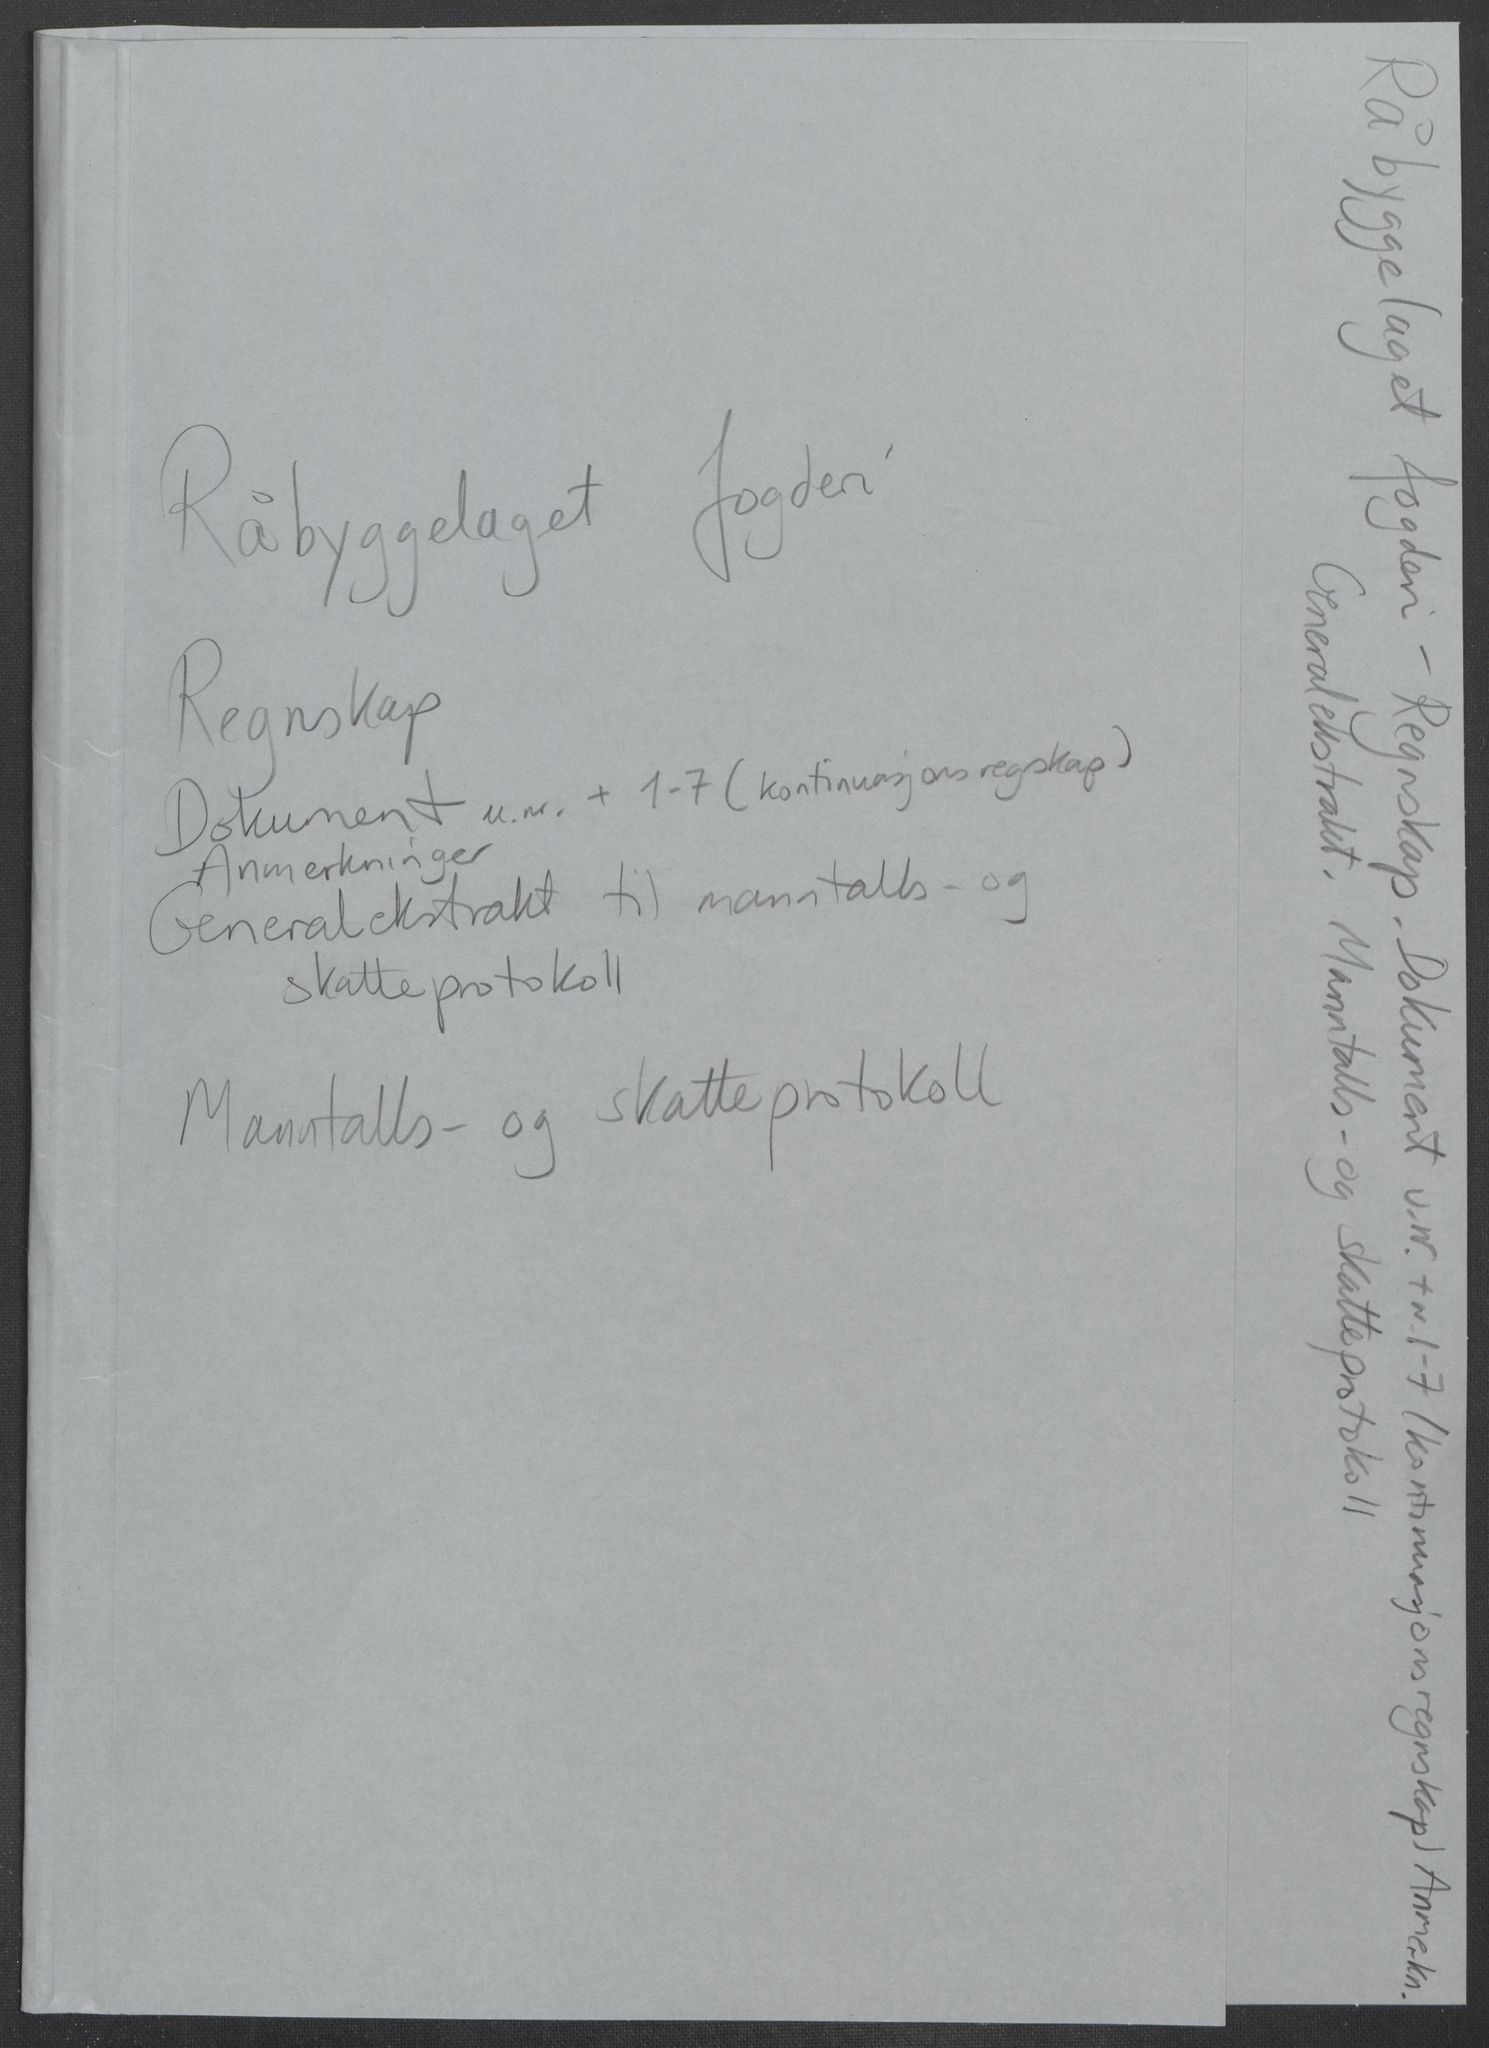 Råbyggelaget fogderi
Regnskap
Dokument u.nr. + 1-7 (kontinuasjonsregskap)
Anmerkninger
Generalekstrakt til manntalls- og
skatteprotokoll
Manntalls- og skatteprotokoll
Råbyggelaget fogderi - Regnskap. Dokument u.nr. + nr. 1-7 (kontinuasjonsregnskap) Anmerkn.
Generalekstrakt. Manntalls- og skatteprotokoll